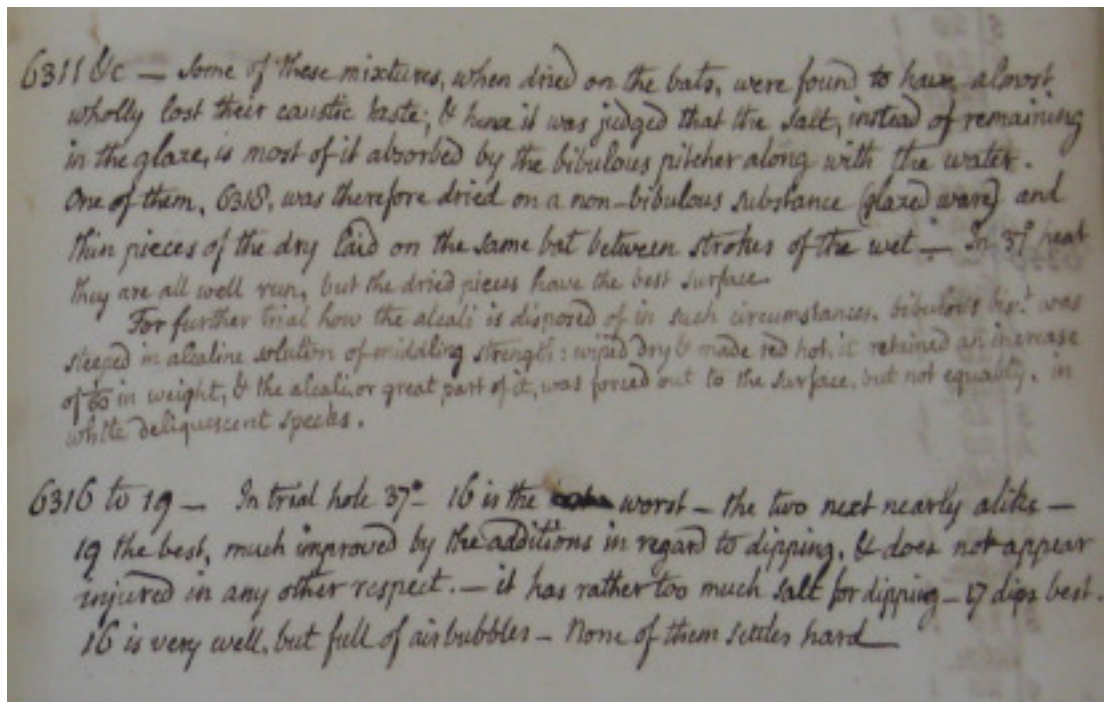 6311 &c — Some of these mixtures, when dried on the bats, were found to have almost
wholly lost their caustic taste; & hence it was judged that the salt, instead of remaining
in the glaze, is most of it absorbed by the bibulous pitcher along with the water.
One of them, 6318, was therefore dried on a non-bibulous substance (glazed ware) and
thin pieces of the dry laid on the same bat between strokes of the wet — In 37° heat
they are all well run, but the dried pieces have the best surface
For further trial how the alcali is disposed of in such circumstances, bibulous bist. was
steeped in alcaline solution of middling strength: wiped dry & made red hot, it retained an increase
of 1/60 in weight, & the alcali, or great part of it, was forced out to the surface, but not equably, in
white deliquescent specks.
6316 to 19 — In trial hole 37° 16 is the worst — the two next nearly alike —
19 the best, much improved by the additions in regard to dipping, & does not appear
injured in any other respect. — it has rather too much salt for dipping — 17 dips best.
16 is very well, but full of airbubbles — None of them settles hard —